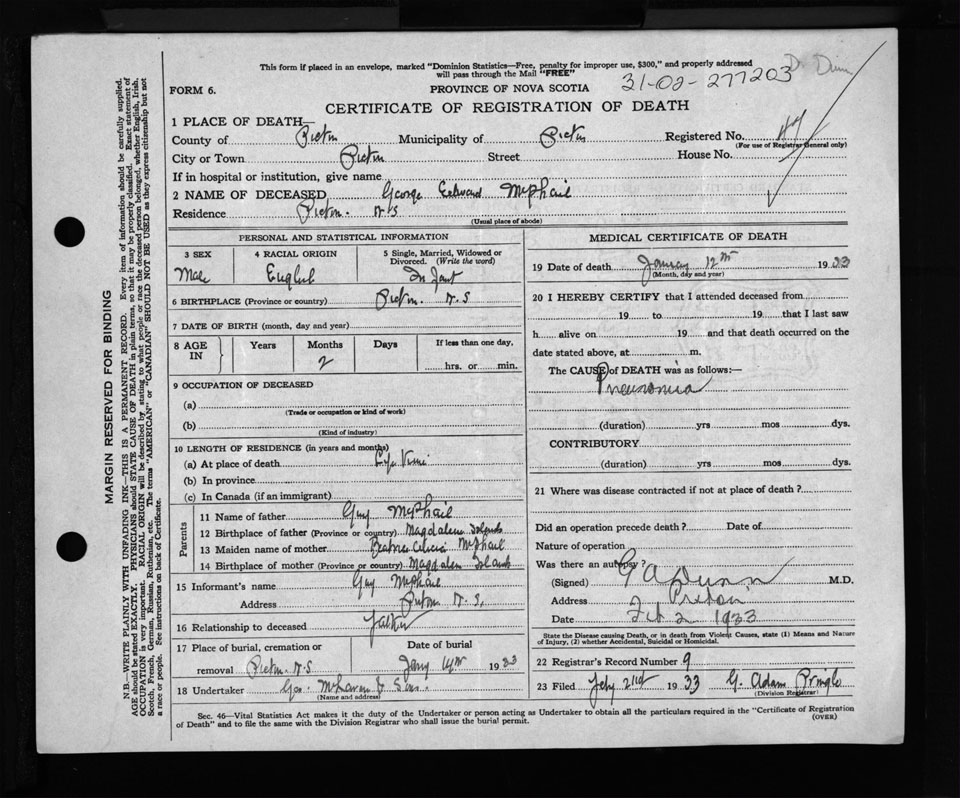 This form if placed in an envelope, marked "Dominion Statistics—Free, penalty for improper use, $300," and properly addressed
will pass through the Mail "FREE"
Dr Dunn
31-02-277203
FORM 6.
PROVINCE OF NOVA SCOTIA
CERTIFICATE OF REGISTRATION OF DEATH
1 PLACE OF DEATH—
County of Pictou Municipality of Pictou Registered No.
(For use of Registrar General only)
City or Town Pictou Street House No.
If in hospital or institution, give name
2 NAME OF DECEASED George Edward McPhail
Residence Pictou. N S
(Usual place of abode)
PERSONAL AND STATISTICAL INFORMATION
3 SEX 4 RACIAL ORIGIN 5 Single, Married, Widowed or Divorced. (Write the word)
Male English Infant
6 BIRTHPLACE (Province or country) Pictou. N. S
7 DATE OF BIRTH (month, day and year)
8 AGE IN Years Months Days If less than one day,
2 hrs. or min.
9 OCCUPATION OF DECEASED
(a)
(Trade or occupation or kind of work)
(b)
(Kind of industry)
10 LENGTH OF RESIDENCE (in years and months)
(a) At place of death Life Time
(b) In province
(c) In Canada (if an immigrant)
Parents
11 Name of father Guy McPhail
12 Birthplace of father (Province or country) Magdalen Islands
13 Maiden name of mother Beatrice McPhail
14 Birthplace of mother (Province or country) Magdalen Islands
15 Informant's name Guy McPhail
Address Pictou N. S.
16 Relationship to deceased Father
17 Place of burial, cremation or removal Pictou. N. S
Date of burial 1933
18 Undertaker Geo. McLaren & Sons.
(Name and address)
MEDICAL CERTIFICATE OF DEATH
19 Date of death January 12th 1933
(Month, day and year)
20 I HEREBY CERTIFY that I attended deceased from
19 to 19 that I last saw
h alive on 19 and that death occurred on the
date stated above, at m.
The CAUSE of DEATH was as follows:—
Pneumonia
(duration) yrs mos dys.
CONTRIBUTORY
(duration) yrs mos dys.
21 Where was disease contracted if not at place of death?
Did an operation precede death? Date of
Nature of operation
Was there an autopsy?
(Signed) G A Dunn M.D.
Address Pictou
Date Feb 2 1933
State the Disease causing Death, or in death from Violent Causes, state (1) Means and Nature
of Injury, (2) whether Accidental, Suicidal or Homicidal.
22 Registrar's Record Number 9
23 Filed Feby 2nd 1933 G. Adam Pringle
(Division Registrar)
Sec. 46—Vital Statistics Act makes it the duty of the Undertaker or person acting as Undertaker to obtain all the particulars required in the "Certificate of Registration
of Death" and to file the same with the Division Registrar who shall issue the burial permit.
(OVER)
MARGIN RESERVED FOR BINDING
N.B.—WRITE PLAINLY WITH UNFADING INK—THIS IS A PERMANENT RECORD. Every item of information should be carefully supplied.
AGE should be stated EXACTLY. PHYSICIANS should STATE CAUSE OF DEATH in plain terms, so that it may be properly classified. Exact statement of
OCCUPATION is very important. RACIAL ORIGIN will be described by stating to what people or race the deceased person belonged, whether English, Irish,
Scotch, French, German, Russian, Ruthenian, etc. The terms "AMERICAN" or "CANADIAN" SHOULD NOT BE USED as they express citizenship but not
a race or people. See instructions on back of Certificate.